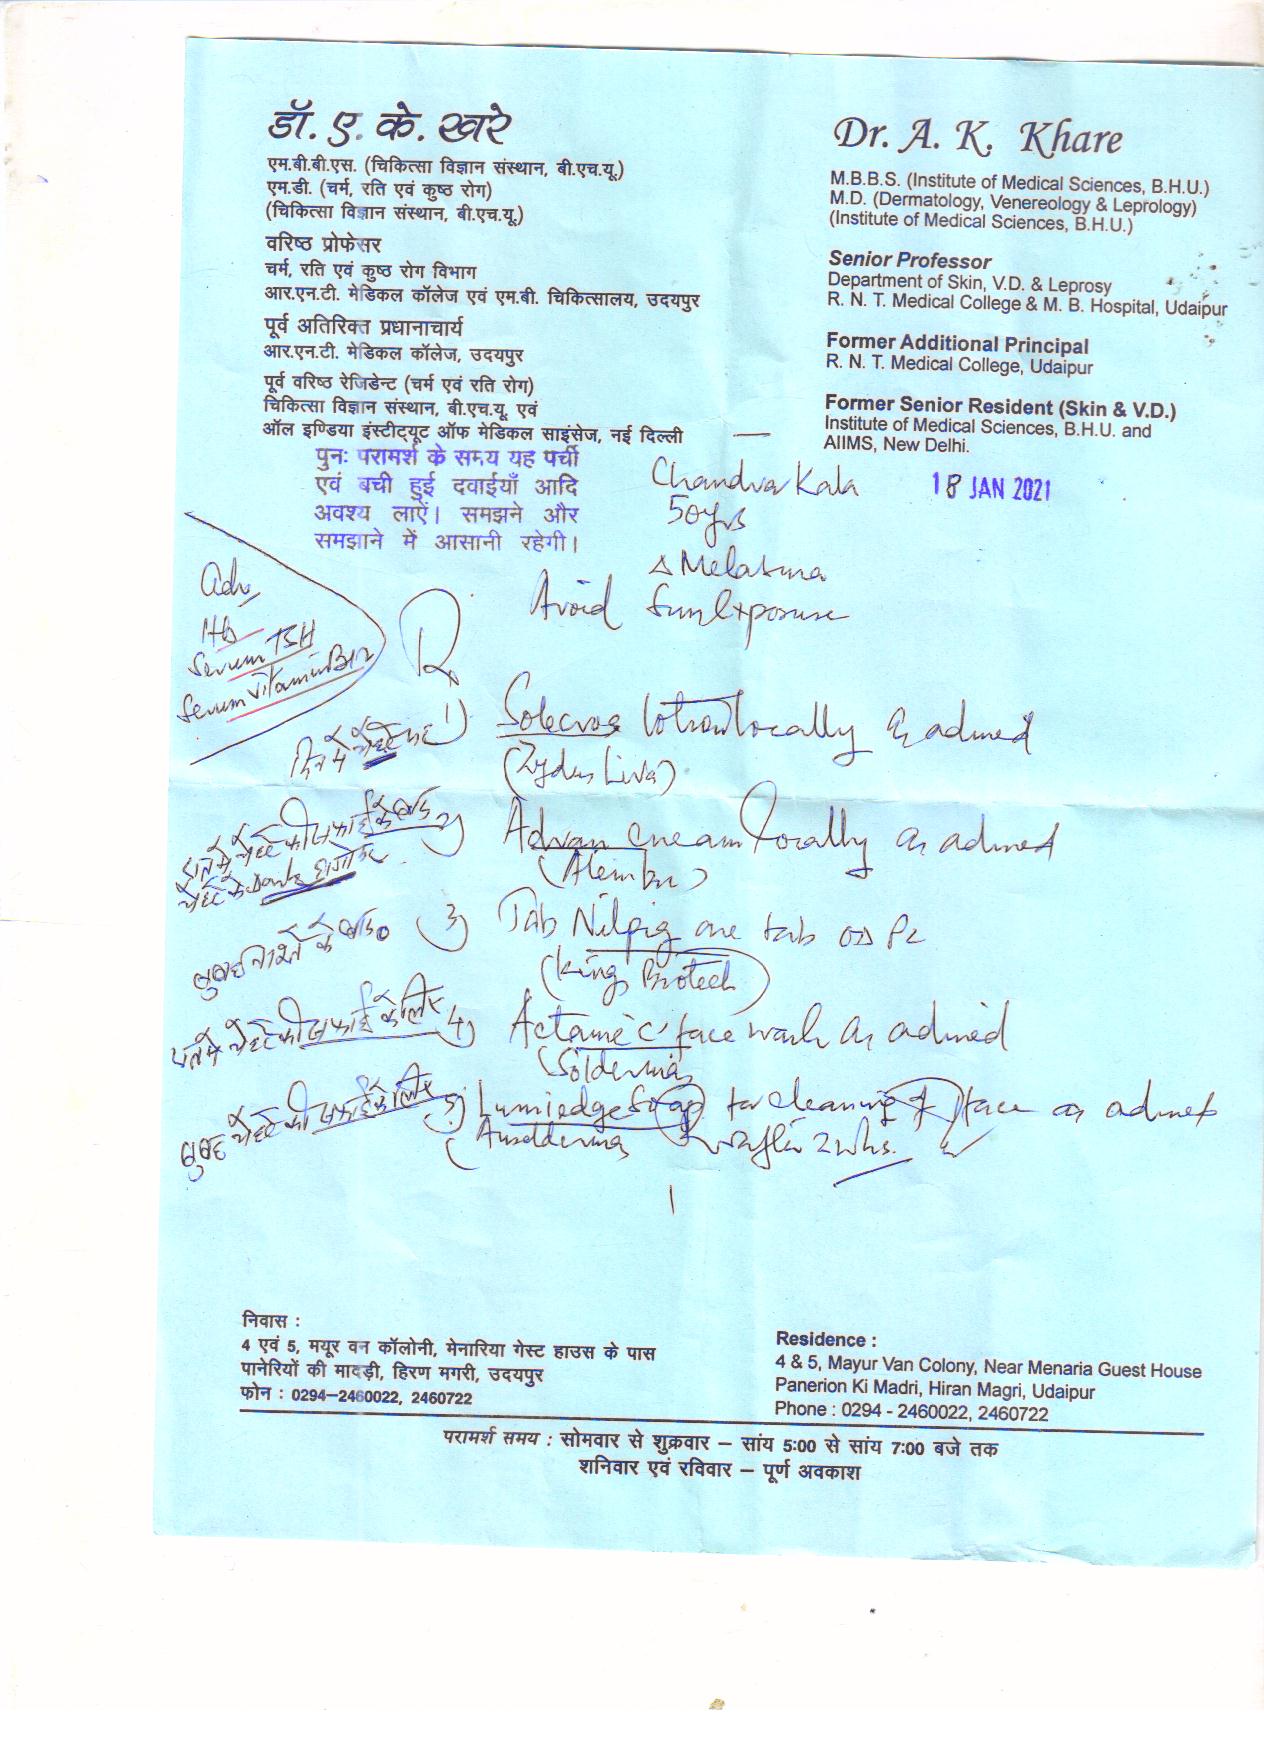 डॉ. ए. के. खरे
एम.बी.बी.एस. (चिकित्सा विज्ञान संस्थान, बी.एच.यू.)
एम.डी. (चर्म, रति एवं कुष्ठ रोग)
(चिकित्सा विज्ञान संस्थान, बी.एच.यू.)
वरिष्ठ प्रोफेसर
चर्म, रति एवं कुष्ठ रोग विभाग
आर.एन.टी. मेडिकल कॉलेज एवं एम.बी. चिकित्सालय, उदयपुर
पूर्व अतिरिक्त प्रधानाचार्य
आर.एन.टी. मेडिकल कॉलेज, उदयपुर
पूर्व वरिष्ठ रेजिडेन्ट (चर्म एवं रति रोग)
चिकित्सा विज्ञान संस्थान, बी.एच.यू. एवं
ऑल इण्डिया इंस्टीट्यूट ऑफ मेडिकल साइंसेज, नई दिल्ली
Dr. A. K. Khare
M.B.B.S. (Institute of Medical Sciences, B.H.U.)
M.D. (Dermatology, Venereology & Leprology)
(Institute of Medical Sciences, B.H.U.)
Senior Professor
Department of Skin, V.D. & Leprosy
R. N. T. Medical College & M. B. Hospital, Udaipur
Former Additional Principal
R. N. T. Medical College, Udaipur
Former Senior Resident (Skin & V.D.)
Institute of Medical Sciences, B.H.U. and
AIIMS, New Delhi.
पुनः परामर्श के समय यह पर्ची
एवं बची हुई दवाईयाँ आदि
अवश्य लाऐं। समझने और
समझाने में आसानी रहेगी।
Chandra Kala
50yrs
18 JAN 2021
Δ Melasma
Avoid Sun Exposure
Adv
Hb
Serum TSH
Serum Vitamin B12
R
दिन में चेहरे पर 1) Solecros lotion locally as advised
(Zydus Liva)
रात में चेहरे की सफाई के बाद 2) Advan cream locally as advised
चेहरे के
(Alembic)
सुबह नाश्ते के बाद 3) Tab Nilpig one tab OD PC
(King Biotech)
रात में चेहरे की सफाई के लिए 4) Actame 'C' face wash as advised
सुबह चेहरे की सफाई के लिए 5) Lumiedge Soap for cleaning of face as advised
R after 2 wks.
निवास :
4 एवं 5, मयूर वन कॉलोनी, मेनारिया गेस्ट हाउस के पास
पानेरियों की मादड़ी, हिरण मगरी, उदयपुर
फोन : 0294–2460022, 2460722
Residence :
4 & 5, Mayur Van Colony, Near Menaria Guest House
Panerion Ki Madri, Hiran Magri, Udaipur
Phone : 0294 - 2460022, 2460722
परामर्श समय : सोमवार से शुक्रवार – सांय 5:00 से सांय 7:00 बजे तक
शनिवार एवं रविवार – पूर्ण अवकाश